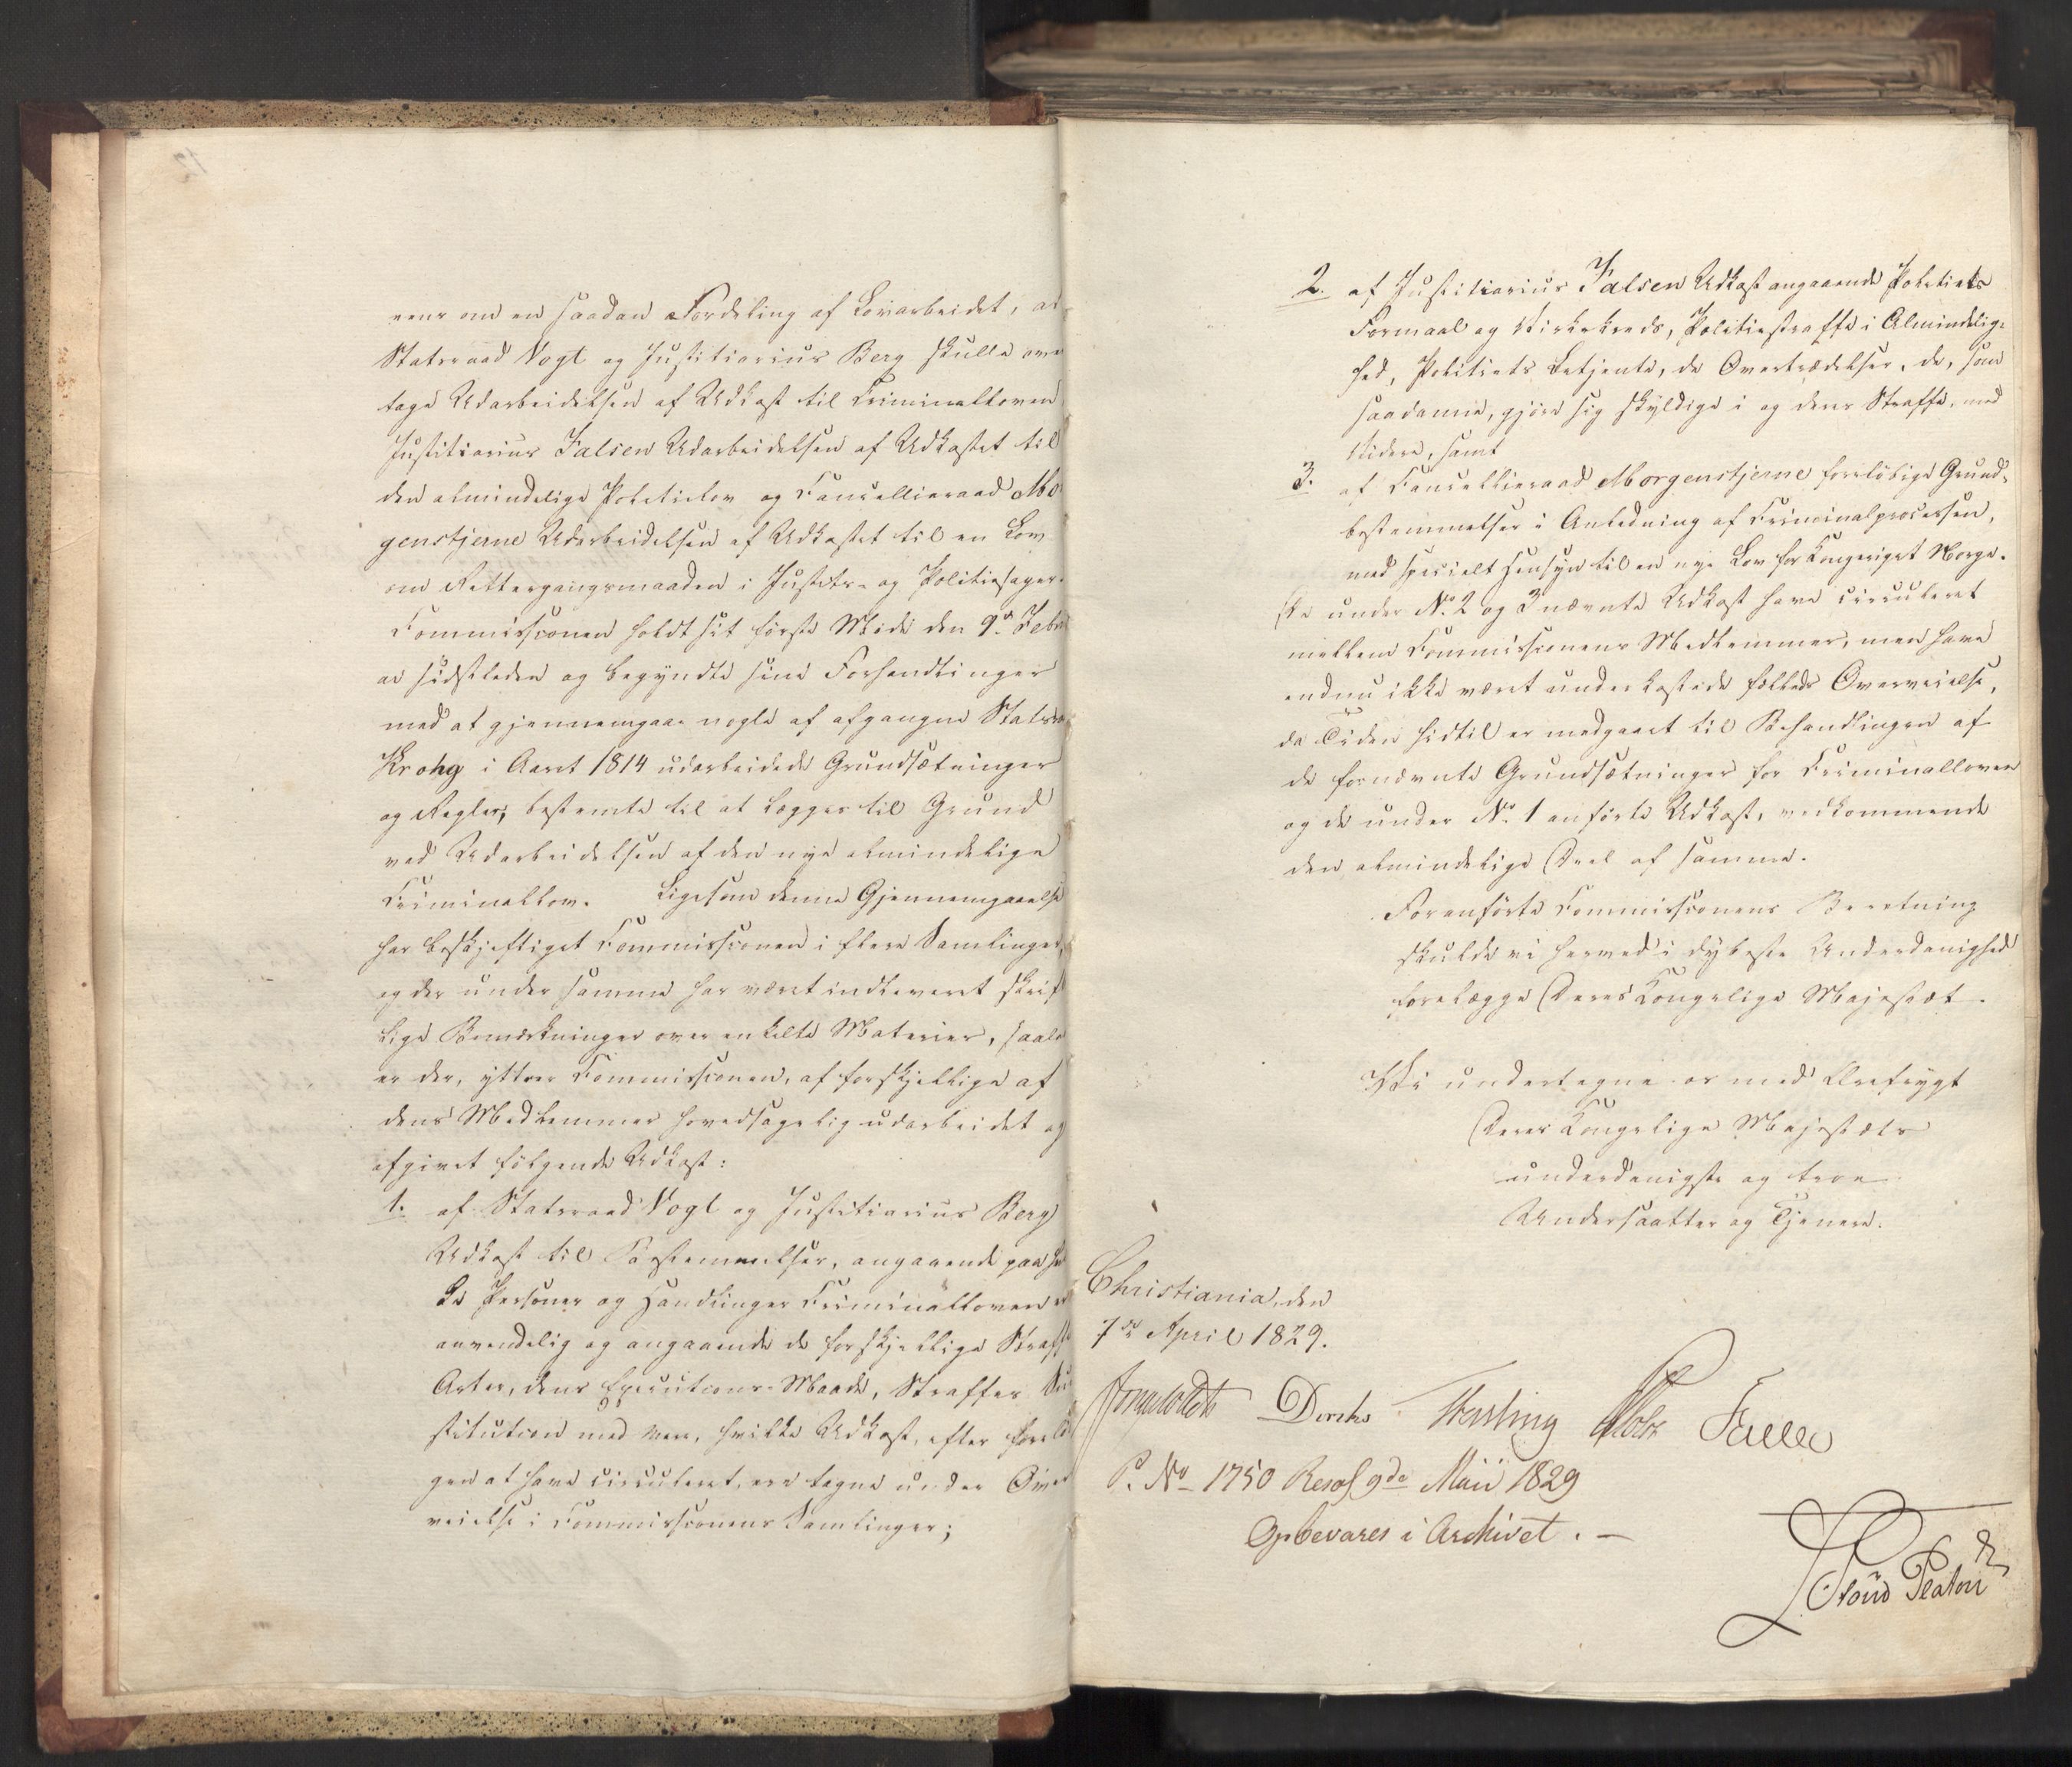 eens om en saadan Fordeling af Lovarbeidet, at
Statsraad Vogt og Justitiarius Berg skulle over
tage Udarbeidelsen af Udkast til Criminalloven
Justitiarius Falsen Udarbeidelsen af Udkastet til
den almindelige Politielov og Cancellieraad Mo
genstjerne Udarbeidelsen af Udkastet til en Lov
om Rettergangsmaaden i Justits- og Politiesager.
Commissionen holdt sit første Møde den 9de Febru
ar sidstleden og begyndte sine Forhandlinger
med at gjennemgaae nogle af afgangne Statsra
Krohg i Aaret 1814 udarbeidede Grundsætninger
og Regler, bestemte til at lægges til Grund
ved Udarbeidelsen af den nye almindelige
Criminallov. Ligesom denne Gjennemgaaelse
har beskjeftiget Commissionen i flere Samlinger,
og der under samme har været indleveret skrift
lige Bemærkninger over enkelte Materier, saale
er der, yttrer Commissionen, af forskjellige af
dens Medlemmer hovedsagelig udarbeidet og
afgivet følgende Udkast:
1. af Statsraad Vogt og Justitiarius Berg
Udkast til Bestemmelser, angaaende paa hvil
ke Personer og Handlinger Criminalloven er
anvendelig og angaaende de forskjellige Straffe
Arter, deres Executions-Maade, Straffes Sub
stitution med mere, hvilke Udkast, efter foreløb
gen at have circuleret, ere tagne under Over
veielse i Commissionens Samlinger;
2. af Justitiarius Falsen Udkast angaaende Politiets
Formaal og Virkekreds, Politiestraffe i Almindelig-
hed, Politiets Betjente, de Overtrædelser, de, som
saadanne, gjøre sig skyldige i og deres Straffe, med
Videre, samt
3. af Cancellieraad Morgenstjerne foreløbige Grund-
bestemmelser i Anledning af Criminalprocessen,
med specielt Hensyn til en nye Lov for Kongeriget Norge.
De under No. 2 og 3 nævnte Udkast have circuleret
mellem Commissionens Medlemmer, men have
endnu ikke været underkastede fælleds Overveielse,
da Tiden hidtil er medgaaet til Behandlingen af
de fornævnte Grundsætninger for Criminalloven
og de under No. 1 anførte Udkast, vedkommende
den almindelige Deel af samme.
Foranførte Commissionens Beretning
skulde vi herved i dybeste Underdanighed
forelægge Deres Kongelige Majestæt.
Vi undertegne os med Ærefrygt
Deres Kongelige Majestæts
underdanigste og troe
Undersaatter og Tjenere.
Christiania, den
7de April 1829.
Diriks
P. No 1750 Resol 9de Maii 1829
Opbevares i Archivet. —
Stoud Platou